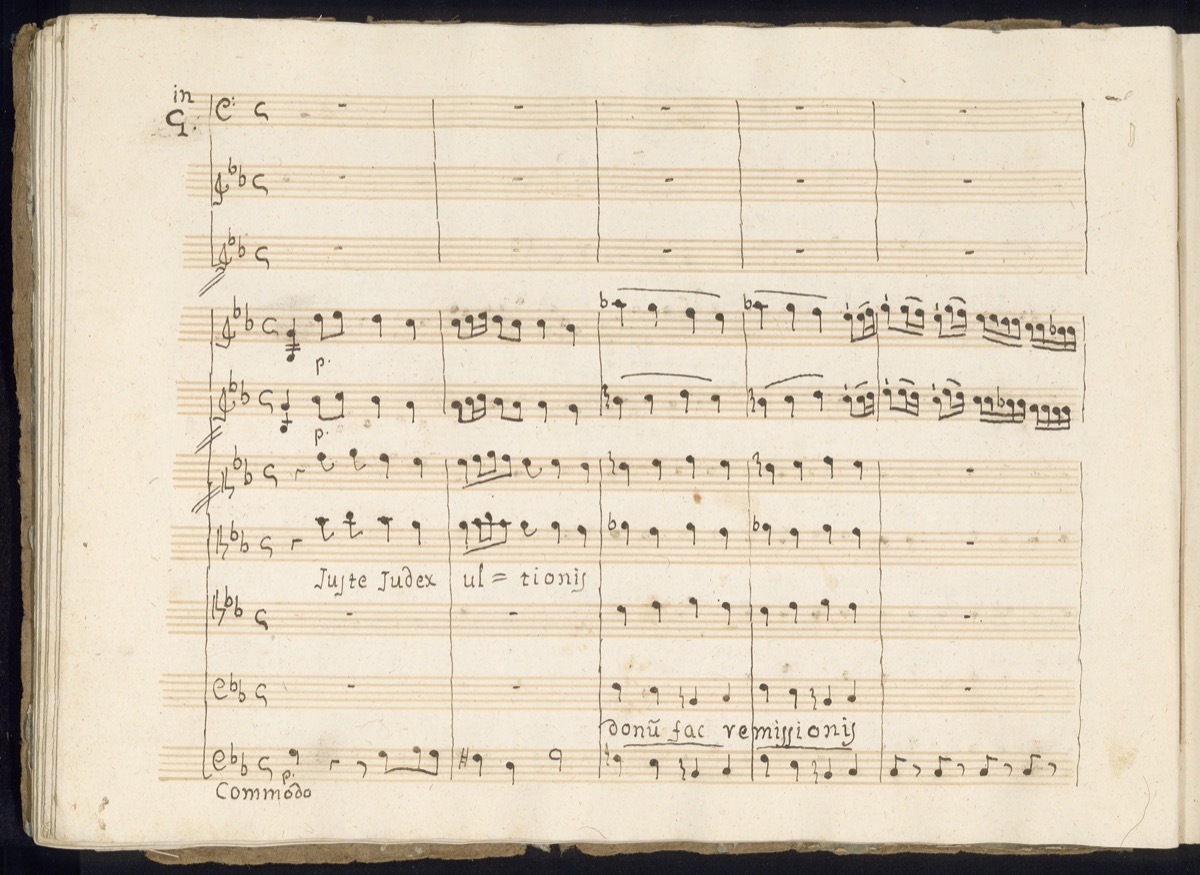 in
G.
p.
p.
Juste Judex ul = tionis
donū fac remissionis
p.
Commodo